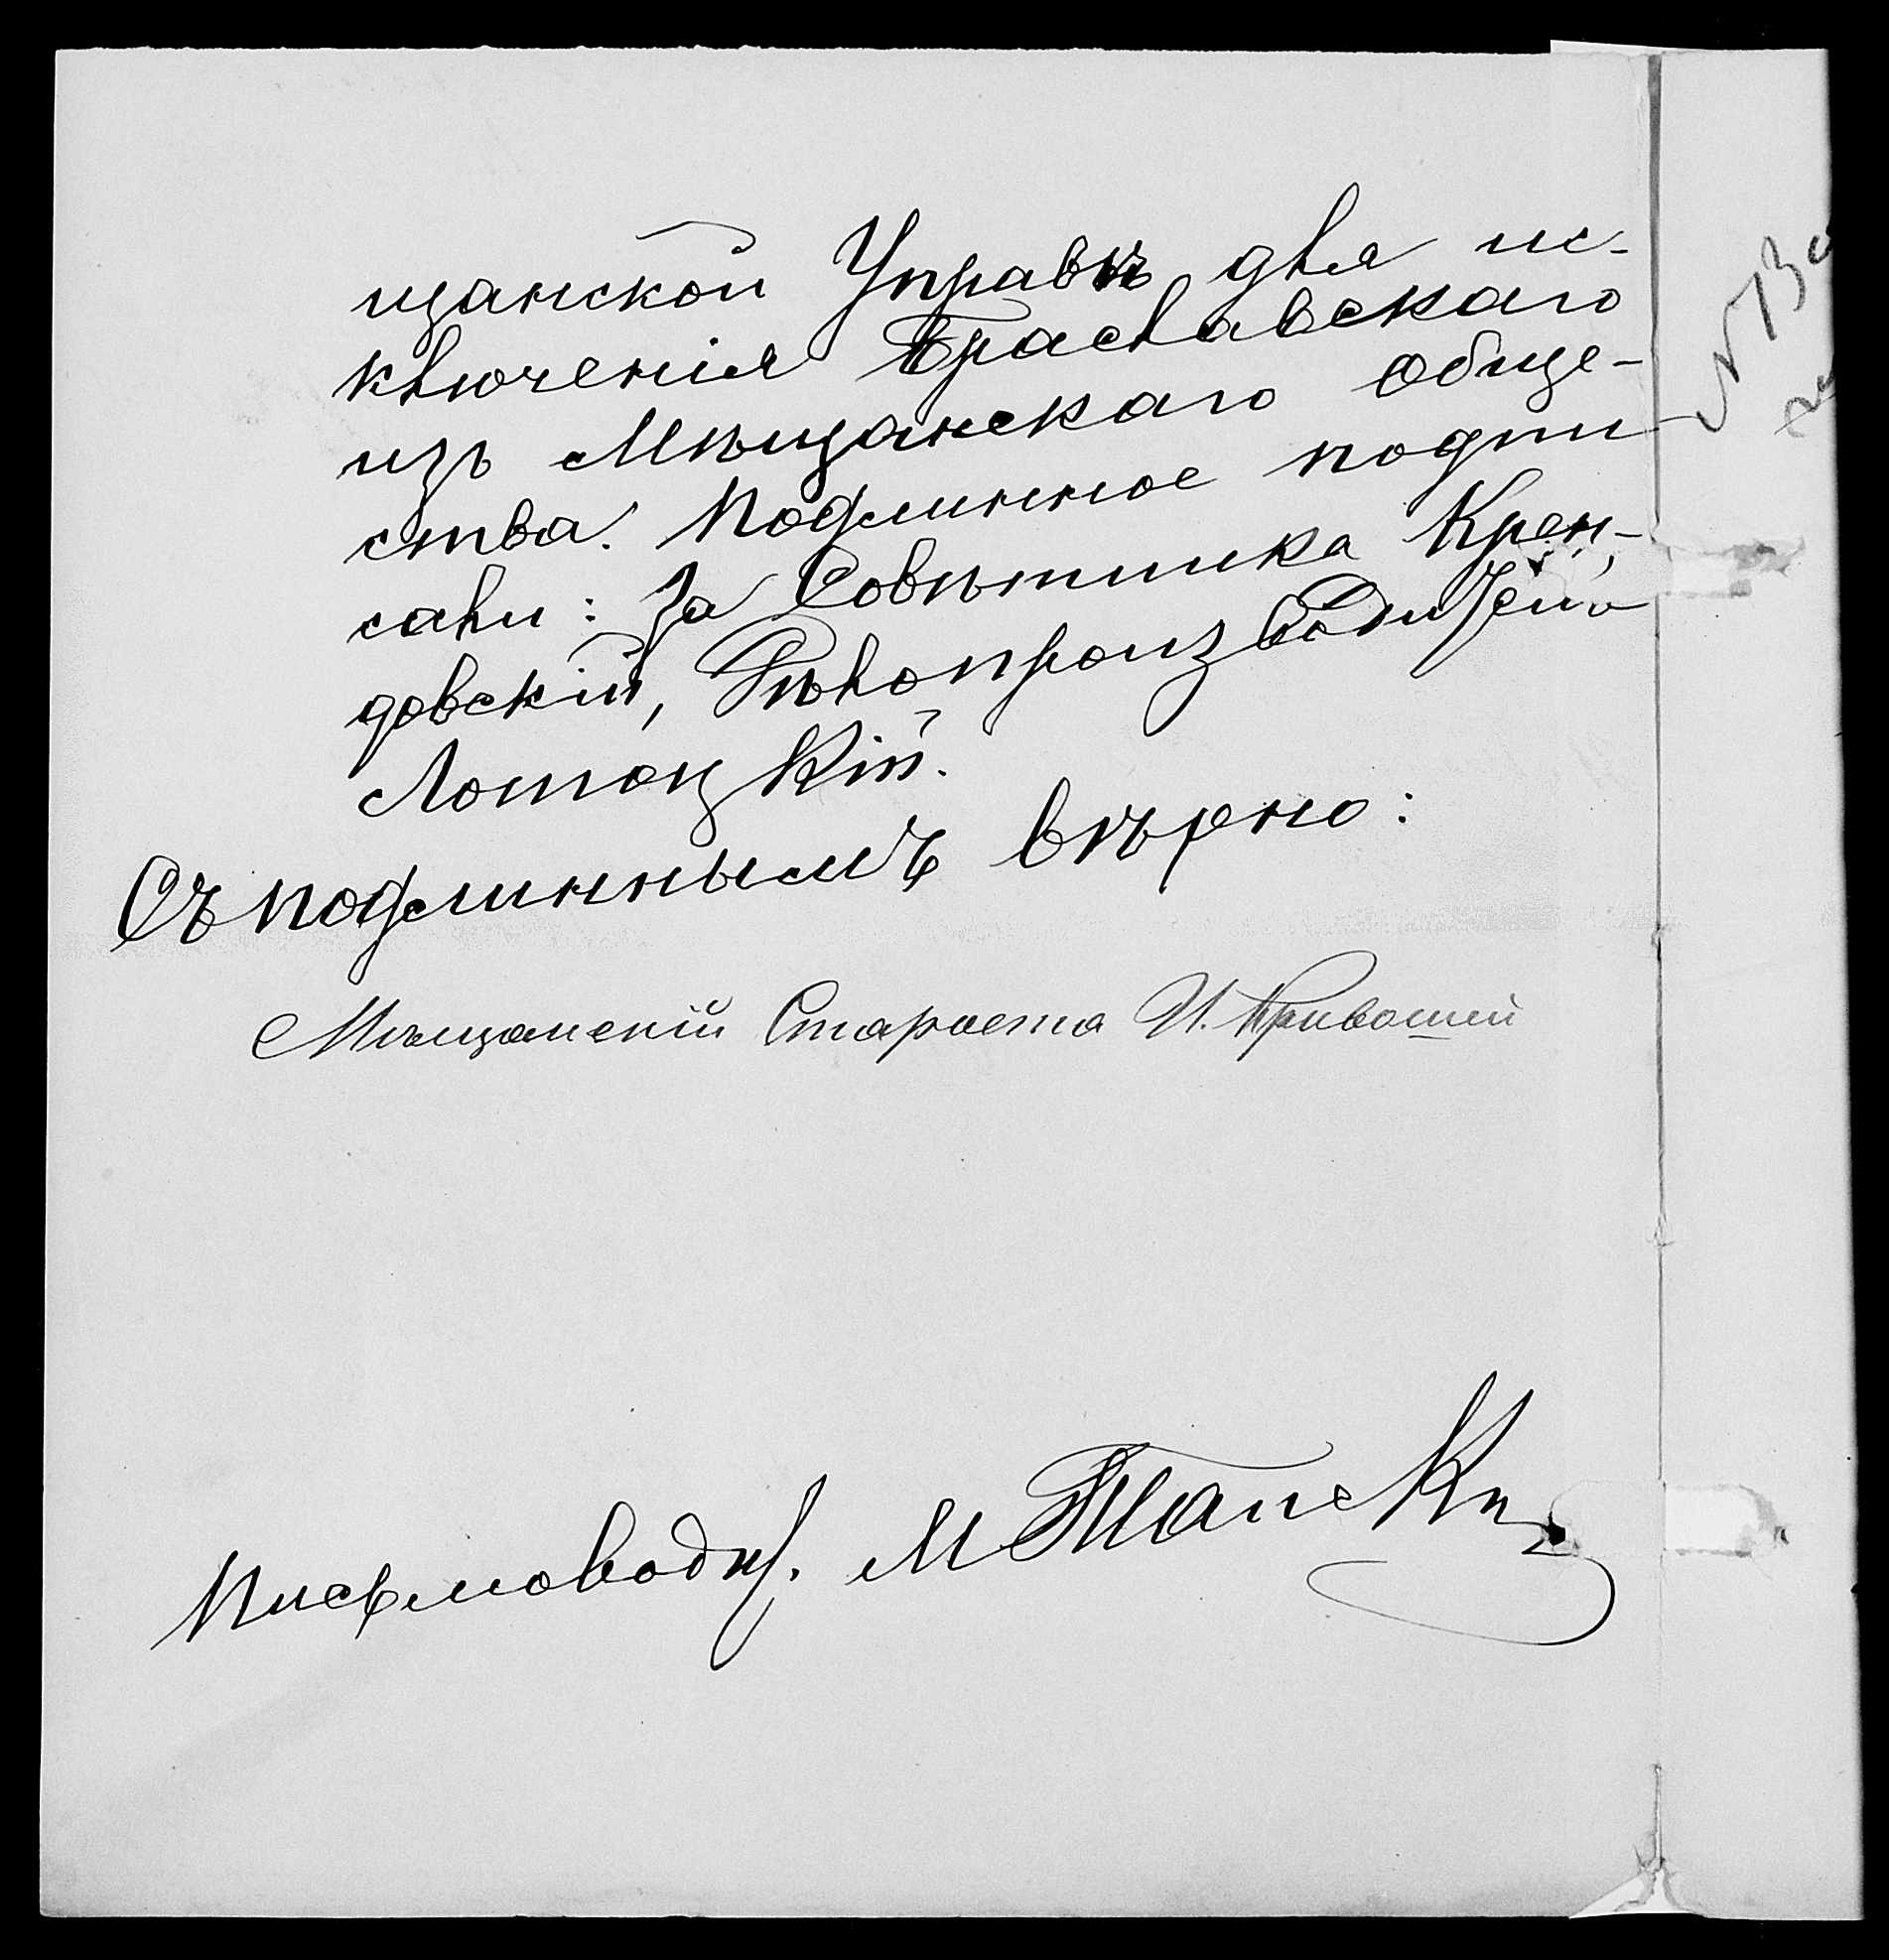 щанской Управѣ для ис-
ключенія Браславскаго
изъ Мѣщанскаго Обще-
ства. Подлинное подпи-
сали: За Совѣтника Крен-
довскій, Дѣлопроизводитель
Лотоцкій.
Съ подлиннымъ вѣрно:
Мѣщанскій Староста И. Кривошей
Письмоводит. М
№ 73